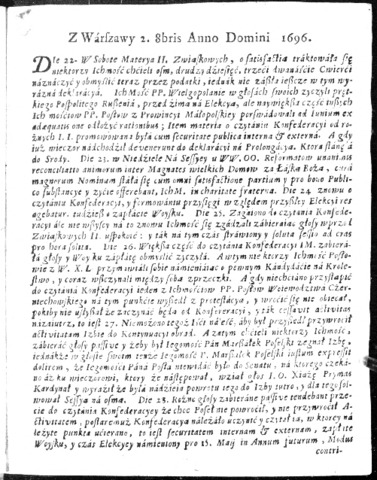 Z Wárszawy 2. 8bris Anno Domini 1696.
DIe 22. W Sobote Materya II. Związkowych, o satisfactia tráktowáłá się
niektorzy Ichmość chcieli osm, drudzy dziesięć, trzeci dwanáście Cwierci
náznáczyć y obmyślić teraz przez podatki, iednák nie zászłá ieszcze w tym wy-
rázna deklarácya. IchMość PP. Wielgopolánie w głosách swoich życzyli pręt-
kiego Pospolitego Ruszenia, przed zimą ná Elekcyą, ale naywiększa część inszych
Ich mościow PP. Posłow z Prowincyi Máłopolskiey perswadowáłá ad iunium ex
adæquatis one odłożyć rationibus; item materia o czytániu Konfederacyi od ro-
żnych I. I. promowána byłá cum securitate publica interna & externa. A gdy
iuż wieczor nádchodził devenere do deklarácyi ná Prolongácyą. Ktora stánęła
do Srody. Die 23. w Niedziele Ná Sessyey u WW. OO. Reformatow unanimis
reconciliatio animorum inter Magnates wielkich Domin. zá Łáską Bożą, cum
magnorum Nominum stáłá się cum omni satisfactione partium, pro bono Publi-
co substancye y życie offerebant, IchM. in charitate fraterna. Die 24. znowu o
czytániu Konfederacyi, y formowániu przysięgi względem przyszłey Elekcyi res
agebatur. tudzież o zapłácie Woysku. Die 25. Zágáiono do czytánia Konfede-
racyi ále nie wszyscy ná to znowu Ichmość się zgádzáli zábieráiąc głosy względ
Związkowych II. uspokoić: y ták na tym czás strawiony y solutá sessio ad cras
pro hora solita. Die 26. Większa część do czytánia Konfederacyi IM. zábierá-
łá głosy y Woysku záp­łátę obmyślić życzyłá. A w tym niektorzy Ichmość Posło-
wie z W. X. L. przymawiáli sobie námieniáiąc o pewnym Kándydácie ná Krole-
stwo, y coraz wszczynáli między sobą zprzeczki. A gdy niechciáno przystąpić
do czytánia Konfederacyi ieden z Ichmościow PP. Posłow Woiewodztwá Czer-
niechowskiego ná tym punkcie wyszedł z protestácyą, y wrocić się nie obiecał,
pokiby nie usłyszał że záczynáć będą od Konfederacyi, y ták cessavit activitas
nazáiutrz, to iest 27. Nieznámo tegoż Ich náleść, áby był przyszedł przywrocił
activitatem Izbie do Kontynuácyi obrad. A zátym chcieli niektorzy Ichmość,
zábieráć głosy passive y żeby był Iegomość Pan Marszałek Poselski zegnał Izbę,
iednákże w głosie swoim tenże Iegomość P. Marszałek Poselski iustum expressit
dolorem, że Iegomości Páná Posłá niewidáć było do Senatu, ná ktorego czeká-
no áż ku wieczorowi, ktory że nástępował, wziął głos I. O. Xiążę Prymas
Kárdynał y wyraził że byłá nádzieia powrotu tego do Izby iutro, y dla tego sol-
wował Sessyą ná osmą. Die 28. Rożne głosy zábieráne passive tendebant prze-
cie do czytánia Konfederacyey że choc Poseł nie powrocił, y nie przywrocił A-
ctivitatem, postáremuż Konfederacya náleżáło uczynić y czytáć ią, w ktorey ná
leżyte punktá uczierano, to iest securitatem internam & externam, zapłátę
Woysku, y czás Elekcyey námieniony pro 15. Maij in Annum futurum, Modus
contri-